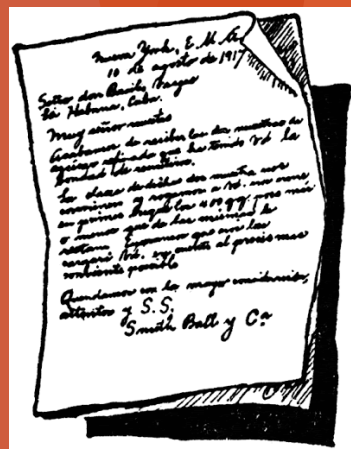 Nueva York, E. U. A.
10 de agosto de 1917
Señor don Basilio Vargas
La Habana, Cuba.
Muy señor nuestro
Acabamos de recibir las dos muestras de
refinado que ha tenido Vd la
bondad de remitirnos.
La clase de dichas dos muestras nos
conviene y rogamos a Vd. nos
en primer lugar los 4 o 5 más
o menos que de las mismas le
restan. Esperamos que nos las
cargará Vd. en cuenta al precio mas
conveniente posible
Quedamos con la mayor consideración,
atentos y S. S,
Smith Ball y Cª